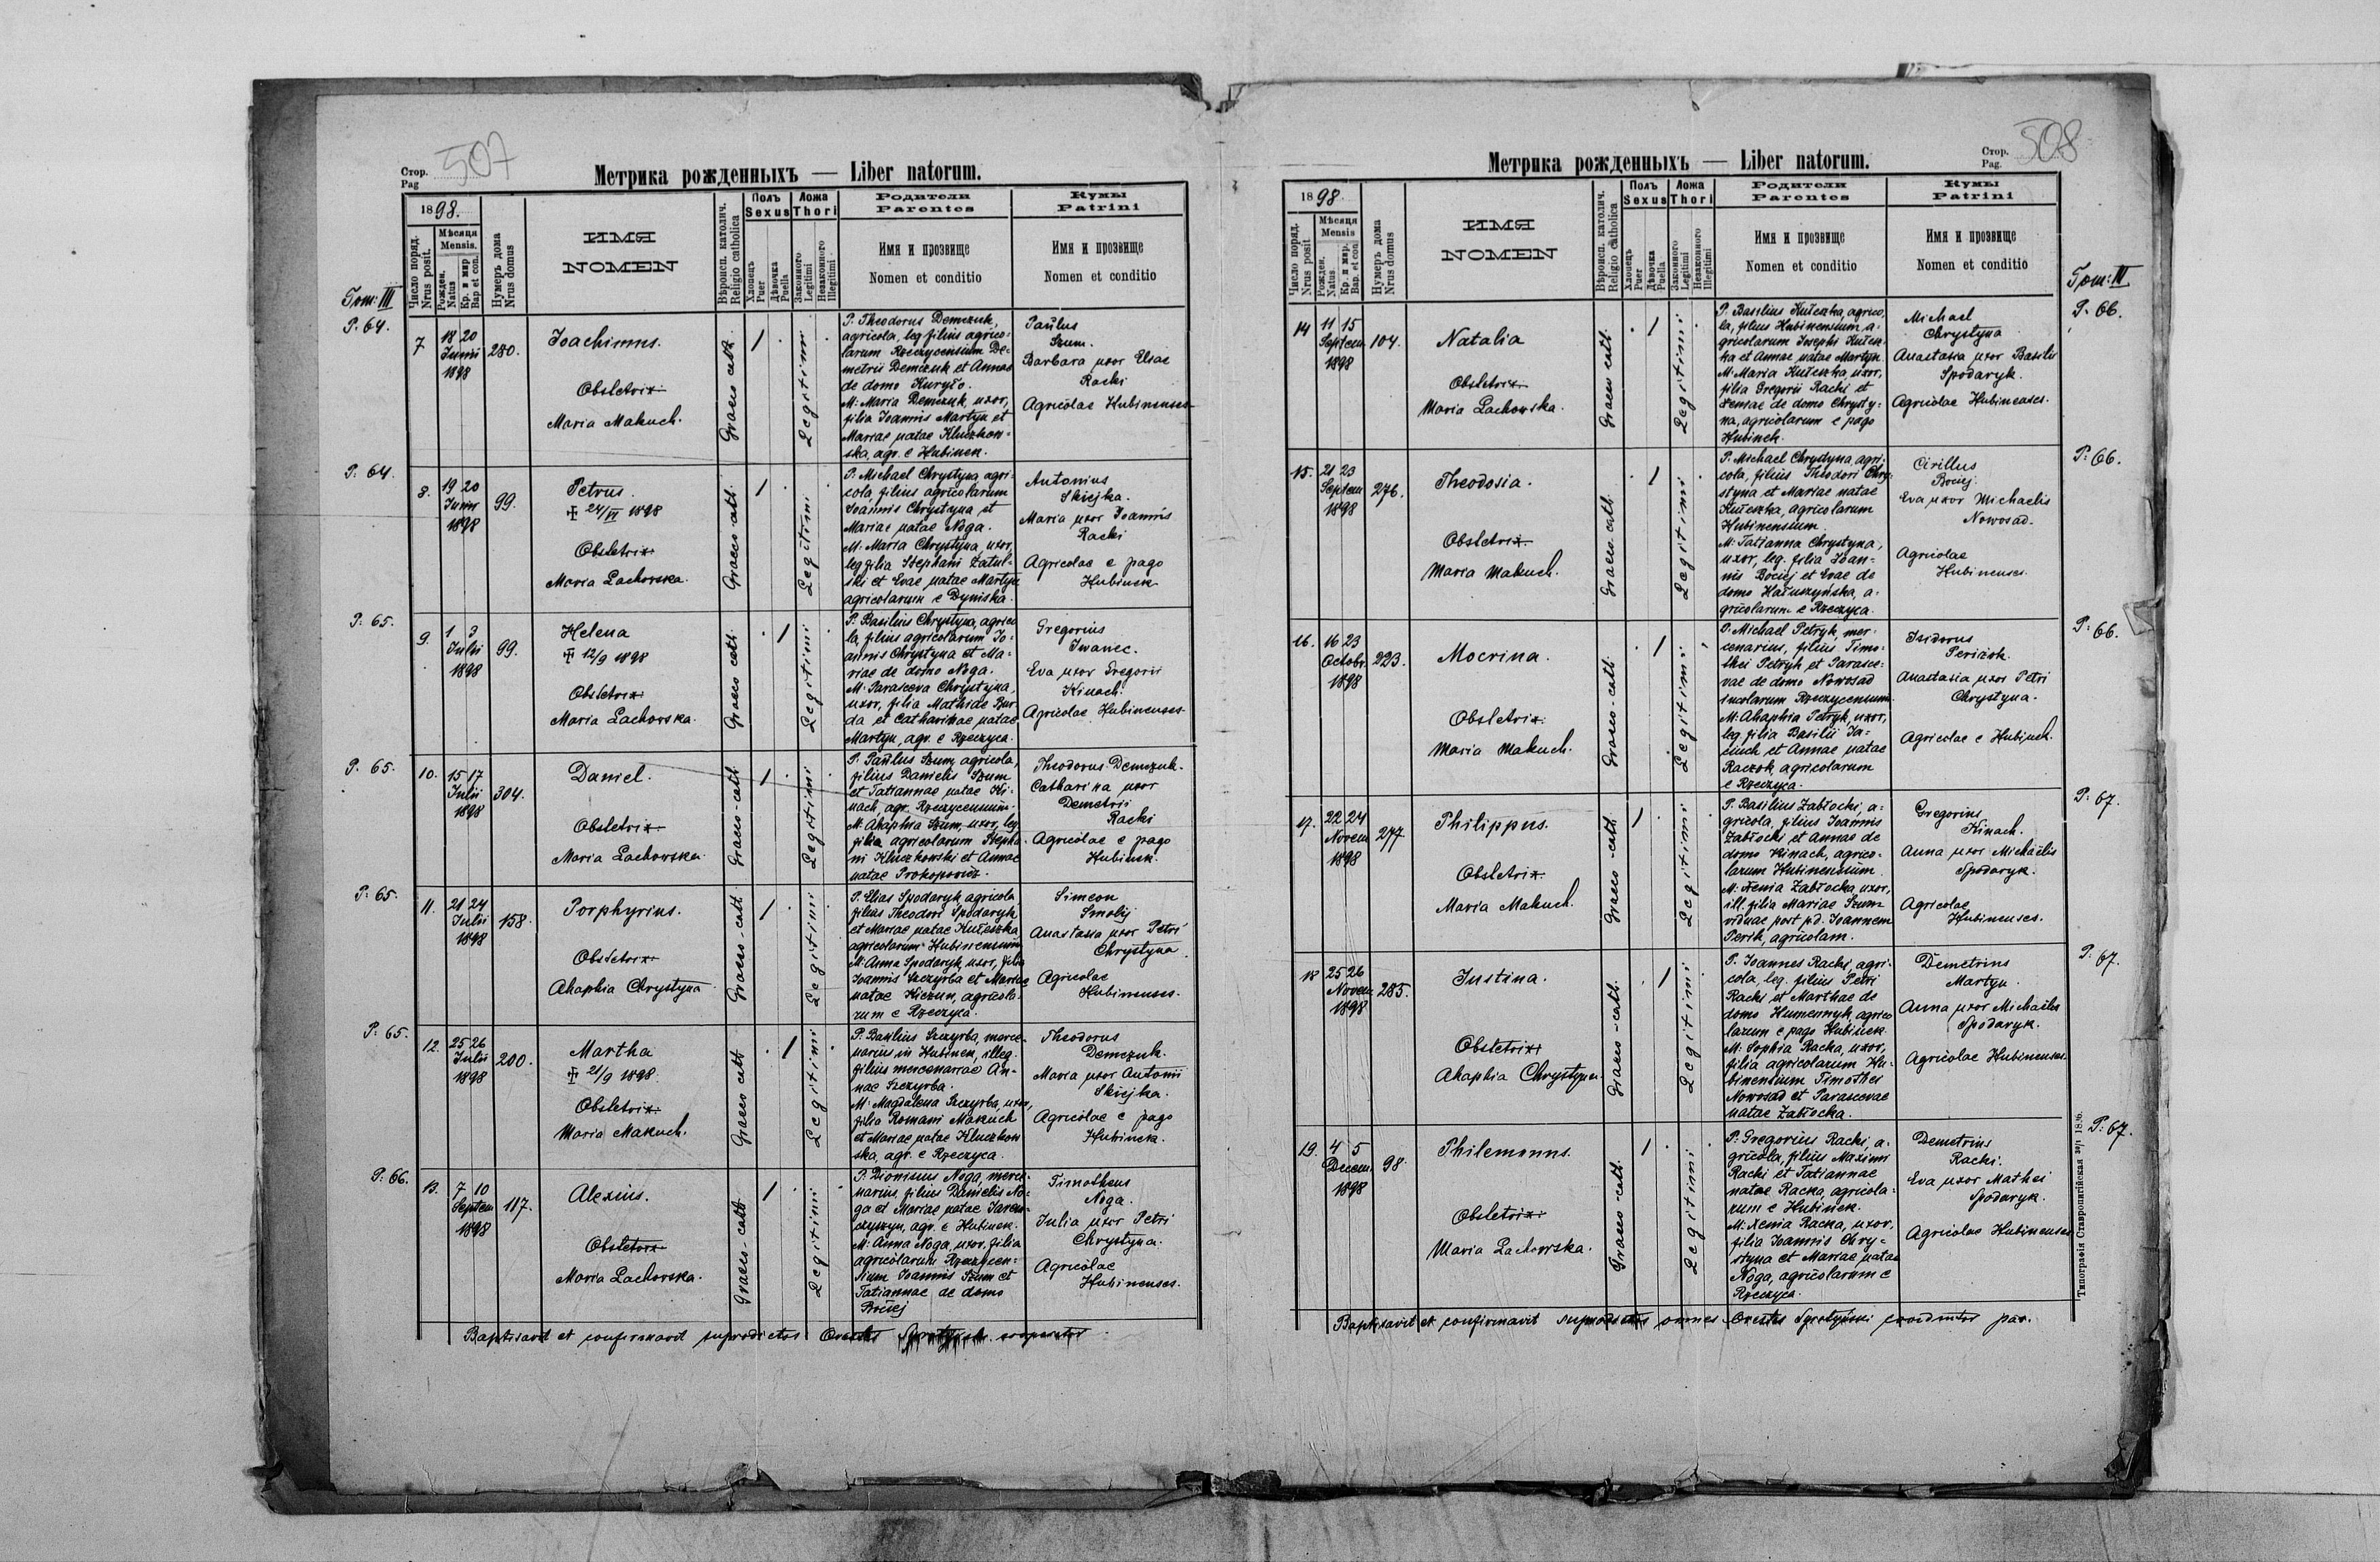 507
Стор.
Pag
Метрика рожденныхъ — Liber natorum.
1898.
Число поряд.
Nrus posit.
Мѣсяця
Mensis.
Рожден.
Natus
Кр. и мир
Bap et con.
Нумеръ дома
Nrus domus
ИМЯ
NOMEN
Вѣроисп. католич.
Religio catholica
Полъ
Sexus
Хлопецъ
Puer
Дѣвочка
Puella
Ложа
Thori
Законного
Legitimi
Незаконного
Illegitimi
Родители
Parentes
Имя и прозвище
Nomen et conditio
Кумы
Patrini
Имя и прозвище
Nomen et conditio
Tom: III
P. 64.
7
18 20
Junii
1898
280.
Joachimus.
Obstetrix
Maria Makuch.
Graeco cath.
Legitimi
P: Theodorus Demczuk,
agricola, leg filius agrico-
larum Rzeczycensium De-
metrii Demczuk et Annae
de domo Kuryło.
M: Maria Demczuk, uxor,
filia Joannis Martyn et
Mariae natae Kluczkow-
ska, agr. e Hubinek.
Paulus
Szum.
Barbara uxor Eliae
Racki
Agricolae Hubinenses
P. 64.
8.
19 20
Junii
1898
99.
Petrus.
24/VI 1898
Obstetrix
Maria Lachowska.
Graeco cath.
Legitimi
P: Michael Chrystyna agri-
cola, filius agricolarum
Joannis Chrystyna et
Mariae natae Noga.
M: Maria Chrystyna, uxor,
leg filia Stephani Zatul-
ski et Evae natae Martyn
agricolarum e Dyniska.
Antonius
Skiejka.
Maria uxor Joannis
Racki
Agricolae e pago
Hubinek
P. 65.
9.
1 3
Julii
1898
99.
Helena
12/9 1898
Obstetrix
Maria Lachowska.
Graeco cath.
Legitimi
P. Basilius Chrystyna, agrico
la, filius agricolarum Jo-
annis Chrystyna et Ma-
riae de domo Noga.
M: Parasceva Chrystyna,
uxor, filia Mathiae Bur-
da et Catharinae natae
Martyn, agr. e Rzeczyca.
Gregorius
Iwanec.
Eva uxor Gregorii
Kinach.
Agricolae Hubinenses
P. 65.
10.
15 17
Julii
1898
304.
Daniel.
Obstetrix
Maria Lachowska.
Graeco-cath.
Legitimi
P. Paulus Szum, agricola,
filius Danielis Szum
et Tatiannae natae Ki-
nach, agr. Rzeczycensium.
M: Ahaphia Szum, uxor, leg.
filia agricolarum Stepha
ni Kluczkowski et Annae
natae Prokopowicz.
Theodorus Demczuk.
Catharina uxor
Demetrii
Racki
Agricolae e pago
Hubinek.
P: 65.
11.
21 24
Julii
1898
158.
Porphyrius.
Obstetrix
Ahaphia Chrystyna
Graeco-cath.
Legitimi
P: Elias Spodaryk agricola
filius Theodori Spodaryk
et Mariae natae Kułeszka
agricolarum Hubinensium
M: Anna Spodaryk, uxor, filia
Joannis Szczyrba et Mariae
natae Kiczun, agricola-
rum e Rzeczyca.
Simeon
Smolij
Anastasia uxor Petri
Chrystyna.
Agricolae
Hubinenses.
P: 65.
12.
25 26
Julii
1898
200.
Martha
21/9 1898.
Obstetrix
Maria Makuch.
Graeco cath
Legitimi
P: Basilius Szczyrba, merce-
narius in Hubinek, illeg.
filius mercenariae An-
nae Szczyrba.
M: Magdalena Szczyrba, uxor,
filia Romani Makuch
et Mariae natae Kluczkow
ska, agr. e Rzeczyca.
Theodorus
Demczuk.
Maria uxor Antonii
Skiejka.
Agricolae e pago
Hubinek.
P: 66.
13.
7 10
Septem
1898
117.
Alexius.
Obstetrix
Maria Lachowska.
Graeco-cath
Legitimi
P: Dionisius Noga, merce-
narius, filius Danielis No-
ga et Mariae natae
agr. e Hubinek.
M: Anna Noga, uxor, filia
agricolarum Rzeczycen-
sium Joannis Szum et
Tatiannae de domo
Bociej
Timotheus
Noga.
Julia uxor Petri
Chrystyna.
Agricolae
Hubinenses.
Baptisavit et confirmavit supradictos Orestes cooperator
508
Стор.
Pag.
Метрика рожденныхъ — Liber natorum.
1898.
Число поряд.
Nrus posit.
Мѣсяця
Mensis
Рожден.
Natus.
Кр. и мир.
Bap. et con
Нумеръ дома
Nrus domus
ИМЯ
NOMEN
Вѣроисп. католич.
Religio catholica
Полъ
Sexus
Хлопецъ
Puer
Дѣвочка
Puella
Ложа
Thori
Законного
Legitimi
Незаконного
Illegitimi
Родители
Parentes
Имя и прозвище
Nomen et conditio
Кумы
Patrini
Имя и прозвище
Nomen et conditio
Tom: III
P. 66.
14
11 15
Septem
1898
104.
Natalia
Obstetrix
Maria Lachowska.
Graeco cath
Legitimi
P. Basilius Kułeszka, agrico,
la, filius Hubinensium, a-
gricolarum Josephi Kułesz-
ka et Annae natae Martyn.
M: Maria Kułeszka, uxor,
filia Gregorii Racki et
Xeniae de domo Chrysty-
na, agricolarum e pago
Hubinek.
Michael
Chrystyna
Anastasia uxor Basilii
Spodaryk.
Agricolae Hubinenses.
P: 66.
15.
21 23
Septem
1898
276.
Theodosia.
Obstetrix
Maria Makuch.
Graeco-cath.
Legitimi
P. Michael Chrystyna, agri-
cola, filius Theodori Chry-
styna et Mariae natae
Kułeszka, agricolarum
Hubinensium.
M: Tatianna Chrystyna,
uxor, leg. filia Joan-
nis Bociej et Evae de
domo Hałuszyńska, a-
gricolarum e Rzeczyca.
Cirillus
Bociej.
Eva uxor Michaelis
Nowosad.
Agricolae
Hubinenses.
P: 66.
16.
16 23
Octobr.
1898
223.
Mocrina.
Obstetrix
Maria Makuch.
Graeco-cath.
Legitimi
P: Michael Petryk, mer-
cenarius, filius Timo-
thei Petryk et Parasce-
vae de domo Nowosad
incolarum Rzeczycensium.
M: Ahaphia Petryk, uxor,
leg. filia Basilii
et Annae natae
Raczok, agricolarum
e Rzeczyca.
Isidorus
Periżok.
Anastasia uxor Petri
Chrystyna.
Agricolae e Hubinek.
P: 67.
17.
22 24
Novem
1898
277.
Philippus.
Obstetrix
Maria Makuch.
Graeco-cath
Legitimi
P. Basilius Zabłocki, a-
gricola, filius Joannis
Zabłocki et Annae de
domo Kinach, agrico-
larum Hubinensium.
M: Xenia Zabłocka, uxor,
ill. filia Mariae Szum
viduae post p.d. Joannem
Perih, agricolam.
Gregorius
Kinach.
Anna uxor Michaëlis
Spodaryk.
Agricolae
Hubinenses.
P: 67.
18
25 26
Novem
1898
285.
Justina.
Obstetrix
Ahaphia Chrystyna
Graeco-cath.
Legitimi
P. Joannes Racki, agri-
cola, leg. filius Petri
Racki et Marthae de
domo Humennyk, agrico
larum e pago Hubinek.
M: Sophia Racka, uxor,
filia agricolarum Hu-
binensium Timothei
Nowosad et Parascevae
natae Zabłocka.
Demetrius
Martyn.
Anna uxor Michaëlis
Spodaryk.
Agricolae Hubinenses.
P: 67.
19.
4 5
Decem
1898
98.
Philemonus.
Obstetrix
Maria Lachowska.
Graeco-cath.
Legitimi
P: Gregorius Racki, a-
gricola, filius Maximi
Racki et Tatiannae
natae Racka, agricola-
rum e Hubinek.
M: Xenia Racka, uxor,
filia Joannis Chry-
styna et Mariae natae
Noga, agricolarum e
Rzeczyca.
Demetrius
Racki.
Eva uxor Mathei
Spodaryk.
Agricolae Hubinenses
Baptisavit et confirmavit supradictos omnes Orestes par.
Типографія Ставропигійская